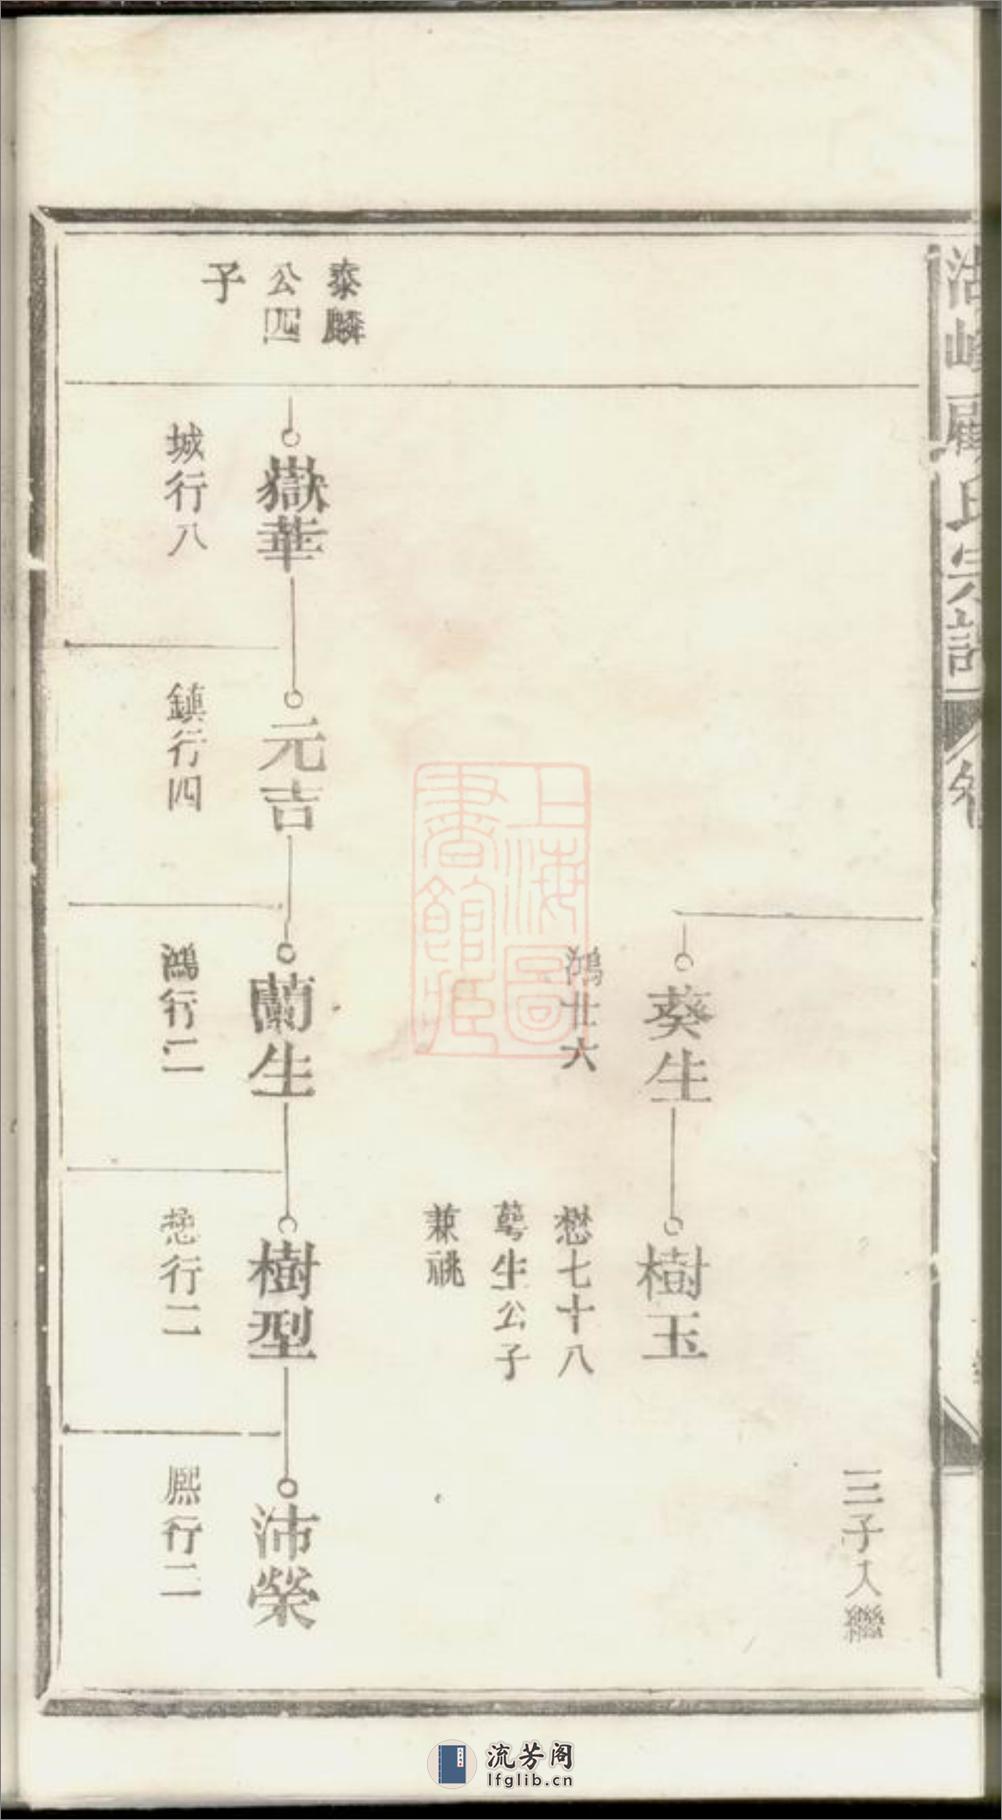 三子入繼
葵生
鴻廿六
樹玉
懋七十八
萼生公子
兼祧
泰麟
公四
子
嶽華
城行八
元吉
鎮行四
蘭生
鴻行二
樹型
懋行二
沛榮
熈行二
上海圖
書館藏
顧氏宗譜
流芳阁
lfglib.cn